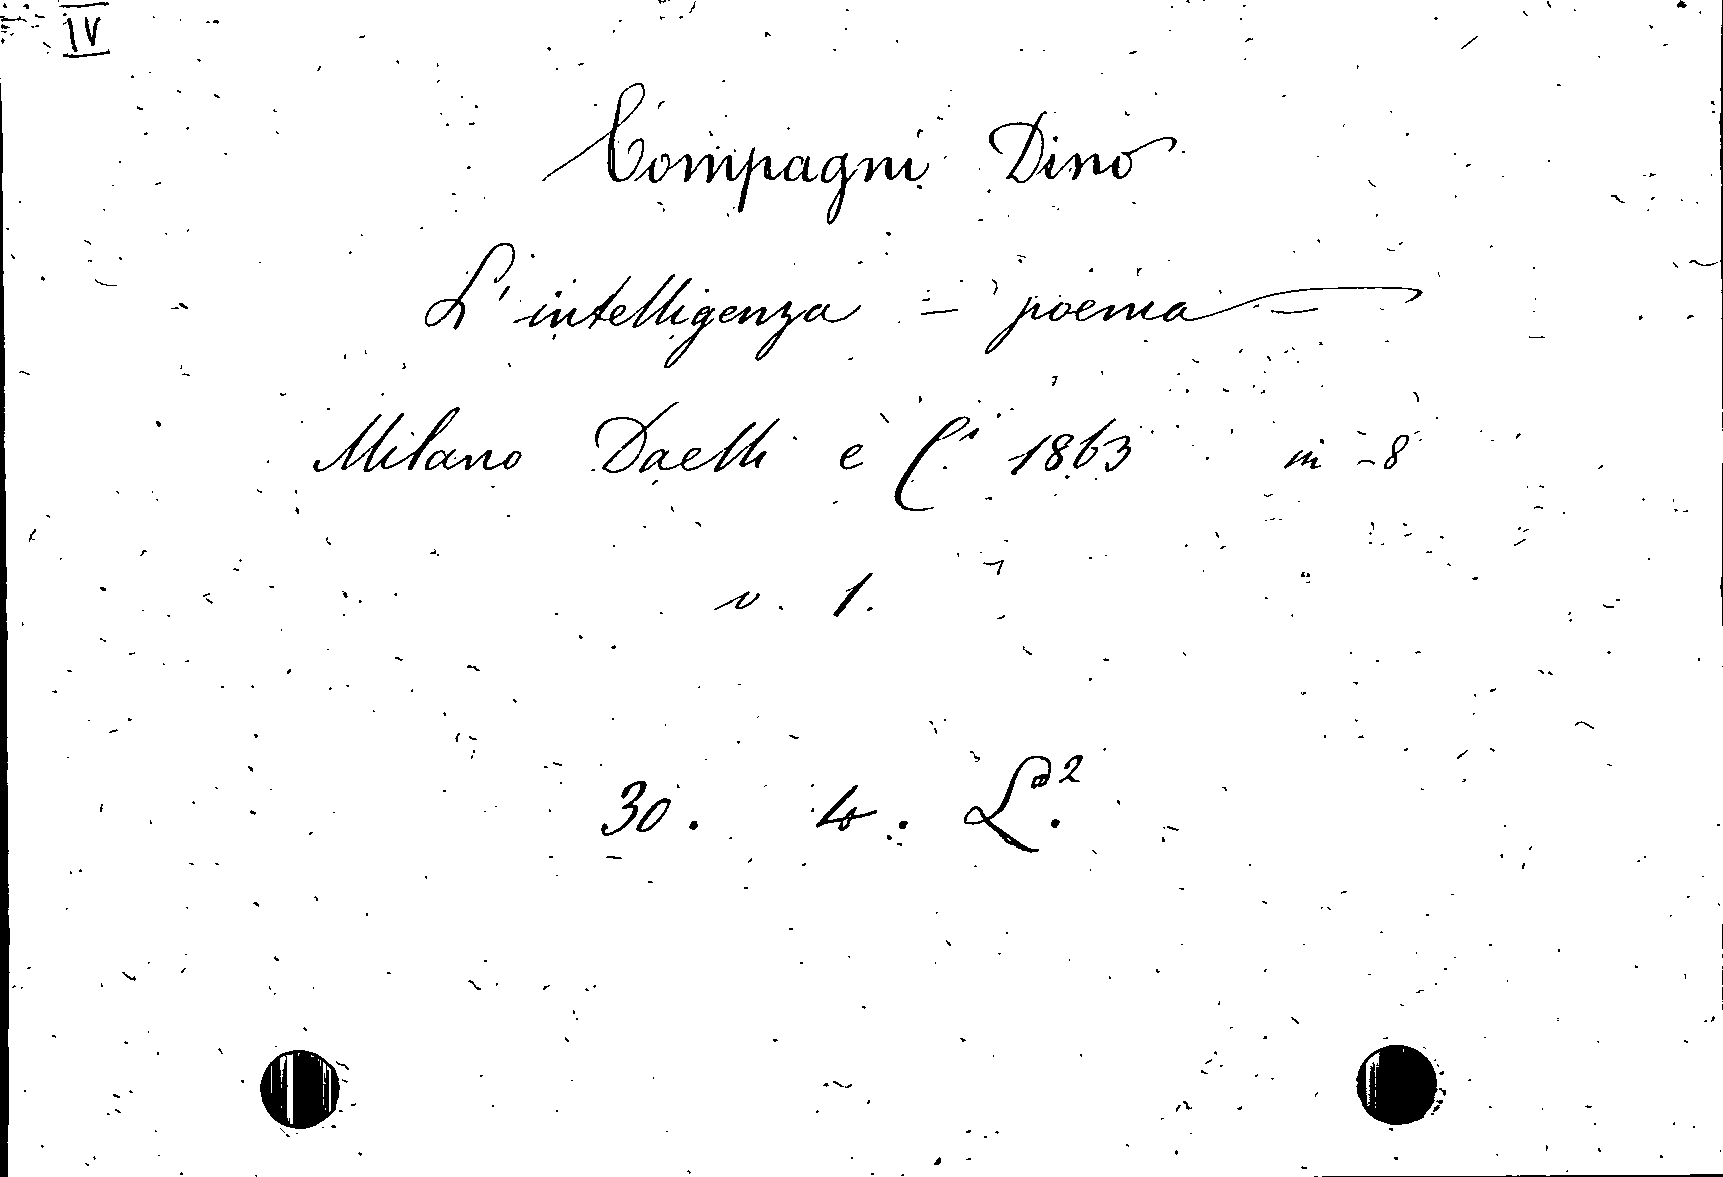 IV
Compagni Dino
L'intelligenza - poema -
Milano Daelli e C.i 1863 in-8
v. 1.
30. 4. L.2